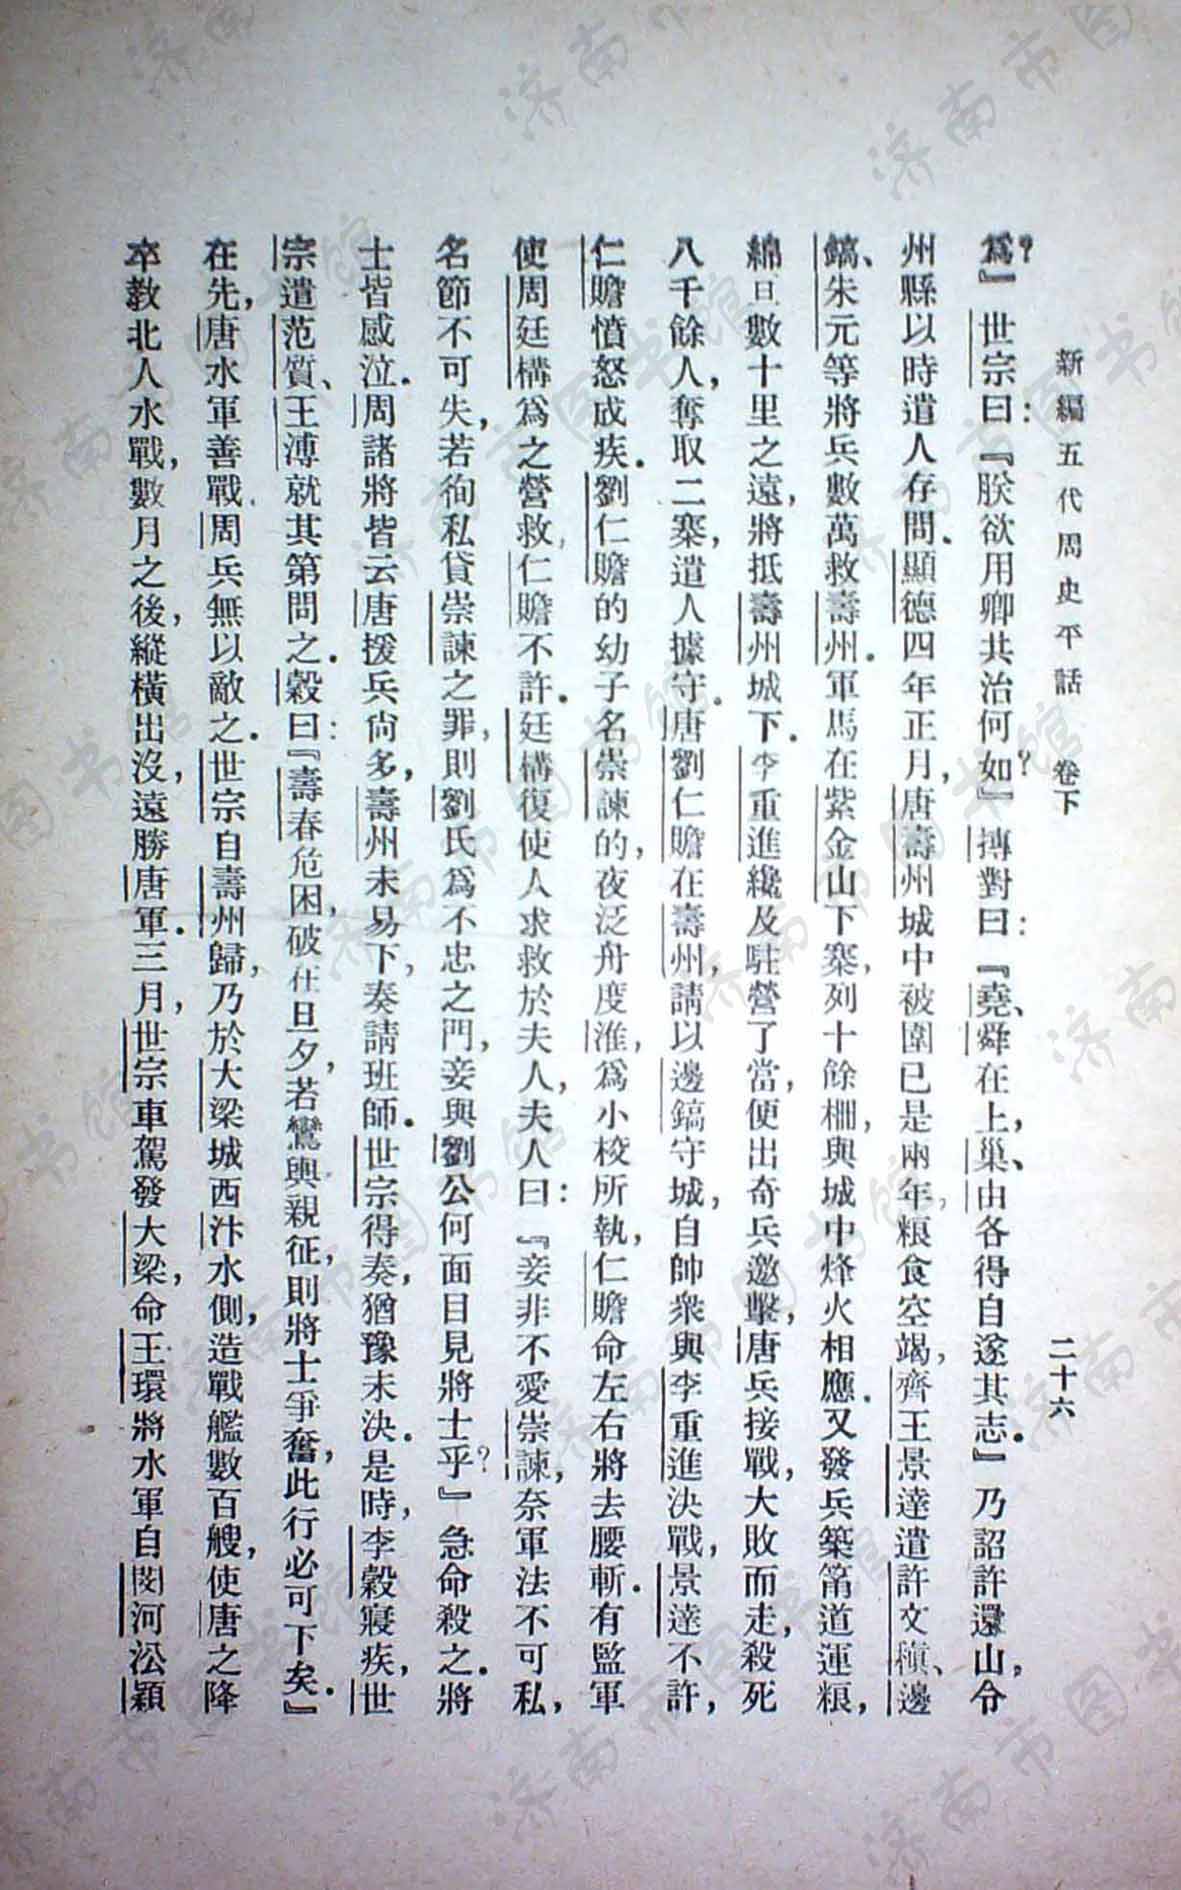 新編五代周史平話　卷下　二十六
爲？』世宗曰：『朕欲用卿共治何如？』摶對曰：『堯、舜在上，巢、由各得自遂其志。』乃詔許還山，令
州縣以時遣人存問。顯德四年正月，唐壽州城中被圍已是兩年，粮食空竭，齊王景達遣許文稹、邊
鎬、朱元等將兵數萬救壽州。軍馬在紫金山下寨，列十餘柵，與城中烽火相應。又發兵築甬道運粮，
綿亘數十里之遠，將抵壽州城下。李重進纔及駐營了當，便出奇兵邀擊，唐兵接戰，大敗而走，殺死
八千餘人，奪取二寨，遣人據守。唐劉仁贍在壽州，請以邊鎬守城，自帥衆與李重進決戰，景達不許，
仁贍憤怒成疾。劉仁贍的幼子名崇諫的，夜泛舟度淮，爲小校所執，仁贍命左右將去腰斬。有監軍
使周廷構爲之營救，仁贍不許。廷構復使人求救於夫人，夫人曰：『妾非不愛崇諫，奈軍法不可私，
名節不可失，若徇私貸崇諫之罪，則劉氏爲不忠之門，妾與劉公何面目見將士乎？』急命殺之。將
士皆感泣。周諸將皆云唐援兵尙多，壽州未易下，奏請班師。世宗得奏，猶豫未決。是時，李穀寢疾，世
宗遣范質、王溥就其第問之。穀曰：『壽春危困，破在旦夕，若鸞輿親征，則將士爭奮，此行必可下矣。』
在先，唐水軍善戰，周兵無以敵之。世宗自壽州歸，乃於大梁城西汴水側，造戰艦數百艘，使唐之降
卒教北人水戰，數月之後，縱橫出沒，遠勝唐軍。三月，世宗車駕發大梁，命王環將水軍自閔河沿潁
济南市图书馆